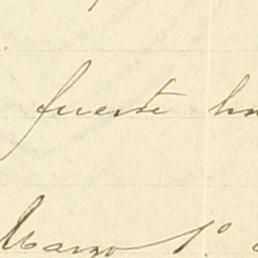 fuerte
Marzo 1º